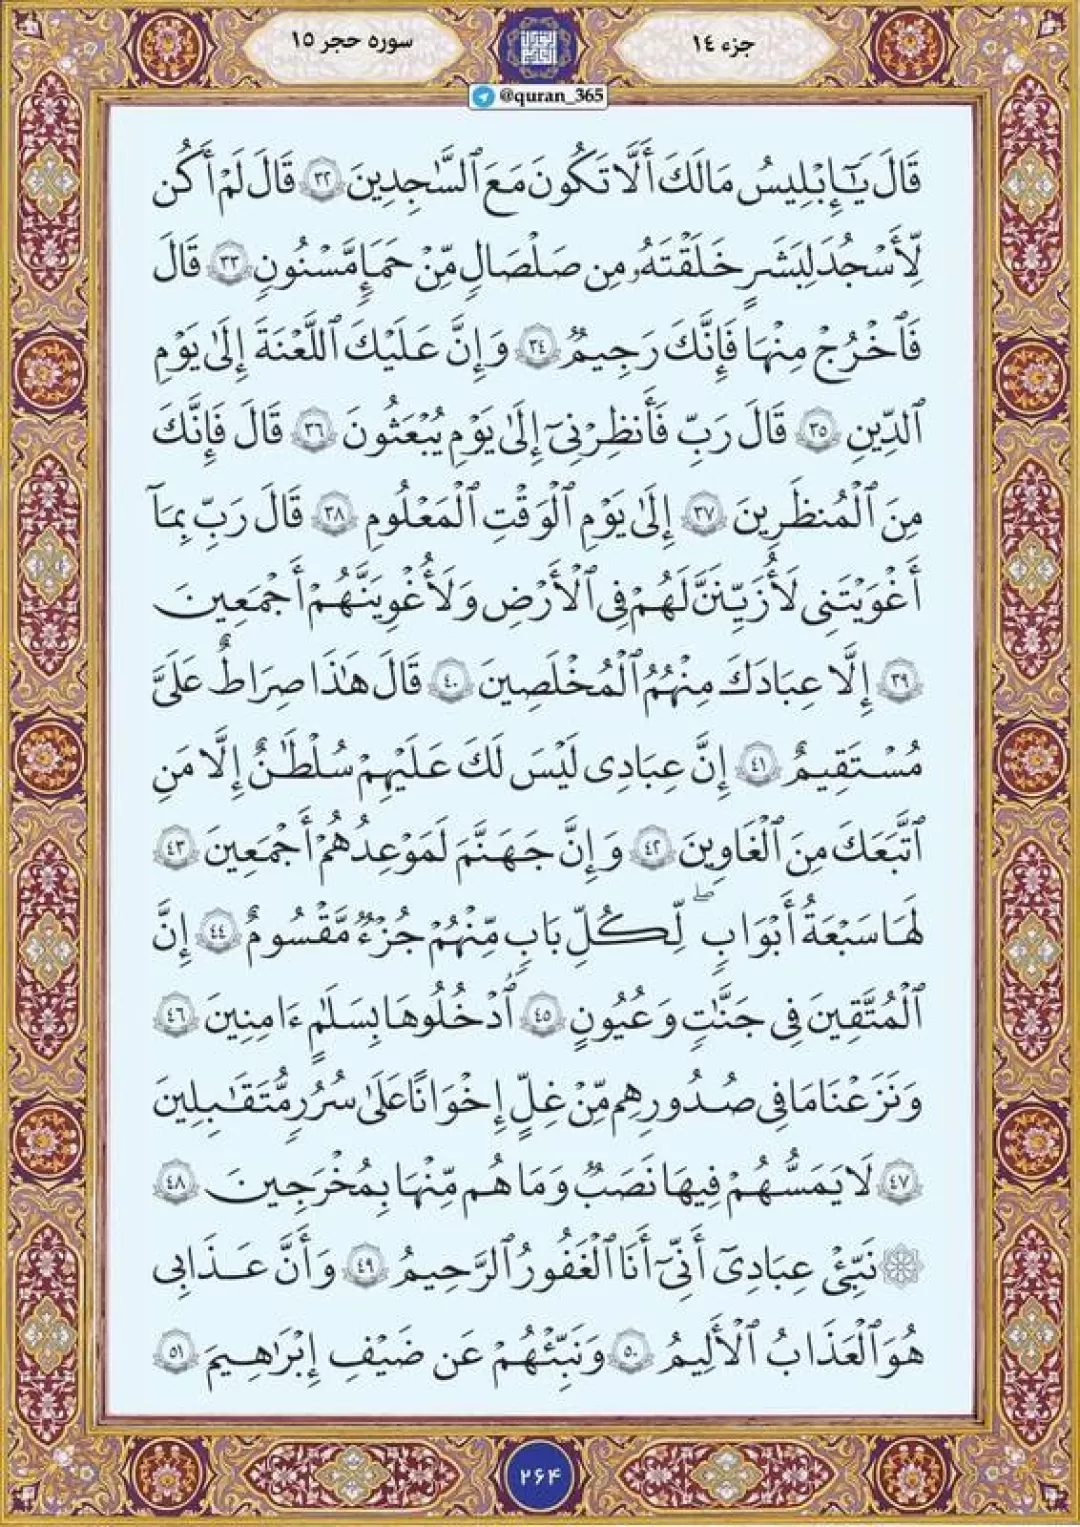 جزء ١٤
سوره حجر ١٥
@quran_365
قَالَ يَٰٓإِبۡلِيسُ مَا لَكَ أَلَّا تَكُونَ مَعَ ٱلسَّٰجِدِينَ ٣٢ قَالَ لَمۡ أَكُن
لِّأَسۡجُدَ لِبَشَرٍ خَلَقۡتَهُۥ مِن صَلۡصَٰلٖ مِّنۡ حَمَإٖ مَّسۡنُونٖ ٣٣ قَالَ
فَٱخۡرُجۡ مِنۡهَا فَإِنَّكَ رَجِيمٞ ٣٤ وَإِنَّ عَلَيۡكَ ٱللَّعۡنَةَ إِلَىٰ يَوۡمِ
ٱلدِّينِ ٣٥ قَالَ رَبِّ فَأَنظِرۡنِيٓ إِلَىٰ يَوۡمِ يُبۡعَثُونَ ٣٦ قَالَ فَإِنَّكَ
مِنَ ٱلۡمُنظَرِينَ ٣٧ إِلَىٰ يَوۡمِ ٱلۡوَقۡتِ ٱلۡمَعۡلُومِ ٣٨ قَالَ رَبِّ بِمَآ
أَغۡوَيۡتَنِي لَأُزَيِّنَنَّ لَهُمۡ فِي ٱلۡأَرۡضِ وَلَأُغۡوِيَنَّهُمۡ أَجۡمَعِينَ
٣٩ إِلَّا عِبَادَكَ مِنۡهُمُ ٱلۡمُخۡلَصِينَ ٤٠ قَالَ هَٰذَا صِرَٰطٌ عَلَيَّ
مُسۡتَقِيمٌ ٤١ إِنَّ عِبَادِي لَيۡسَ لَكَ عَلَيۡهِمۡ سُلۡطَٰنٌ إِلَّا مَنِ
ٱتَّبَعَكَ مِنَ ٱلۡغَاوِينَ ٤٢ وَإِنَّ جَهَنَّمَ لَمَوۡعِدُهُمۡ أَجۡمَعِينَ ٤٣
لَهَا سَبۡعَةُ أَبۡوَٰبٖ ۖ لِّكُلِّ بَابٖ مِّنۡهُمۡ جُزۡءٞ مَّقۡسُومٌ ٤٤ إِنَّ
ٱلۡمُتَّقِينَ فِي جَنَّٰتٖ وَعُيُونٍ ٤٥ ٱدۡخُلُوهَا بِسَلَٰمٍ ءَامِنِينَ ٤٦
وَنَزَعۡنَا مَا فِي صُدُورِهِم مِّنۡ غِلٍّ إِخۡوَٰنًا عَلَىٰ سُرُرٖ مُّتَقَٰبِلِينَ
٤٧ لَا يَمَسُّهُمۡ فِيهَا نَصَبٞ وَمَا هُم مِّنۡهَا بِمُخۡرَجِينَ ٤٨
۞ نَبِّئۡ عِبَادِيٓ أَنِّيٓ أَنَا ٱلۡغَفُورُ ٱلرَّحِيمُ ٤٩ وَأَنَّ عَذَابِي
هُوَ ٱلۡعَذَابُ ٱلۡأَلِيمُ ٥٠ وَنَبِّئۡهُمۡ عَن ضَيۡفِ إِبۡرَٰهِيمَ ٥١
۲۶۴